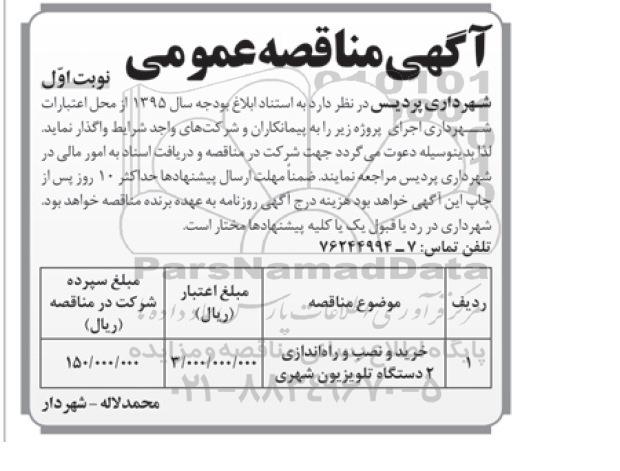 آگهی مناقصه عمومی
نوبت اوّل
شهرداری پردیس در نظر دارد به استناد ابلاغ بودجه سال ۱۳۹۵ از محل اعتبارات
شهرداری اجرای پروژه زیر را به پیمانکاران و شرکت‌های واجد شرایط واگذار نماید.
لذا بدینوسیله دعوت می‌گردد جهت شرکت در مناقصه و دریافت اسناد به امور مالی در
شهرداری پردیس مراجعه نمایند. ضمناً مهلت ارسال پیشنهادها حداکثر ۱۰ روز پس از
چاپ این آگهی خواهد بود هزینه درج آگهی روزنامه به عهده برنده مناقصه خواهد بود.
شهرداری در رد یا قبول یک یا کلیه پیشنهادها مختار است.
تلفن تماس: ۷ ـ ۷۶۲۴۴۹۹۴
ردیف موضوع مناقصه مبلغ اعتبار (ریال) مبلغ سپرده شرکت در مناقصه (ریال)
۱ خرید و نصب و راه‌اندازی ۲ دستگاه تلویزیون شهری ۳/۰۰۰/۰۰۰/۰۰۰ ۱۵۰/۰۰۰/۰۰۰
محمدلاله - شهردار
ParsNamadData
پایگاه اطلاع رسانی مناقصه و مزایده
۰۲۱-۸۸۳۴۹۶۷۰-۵